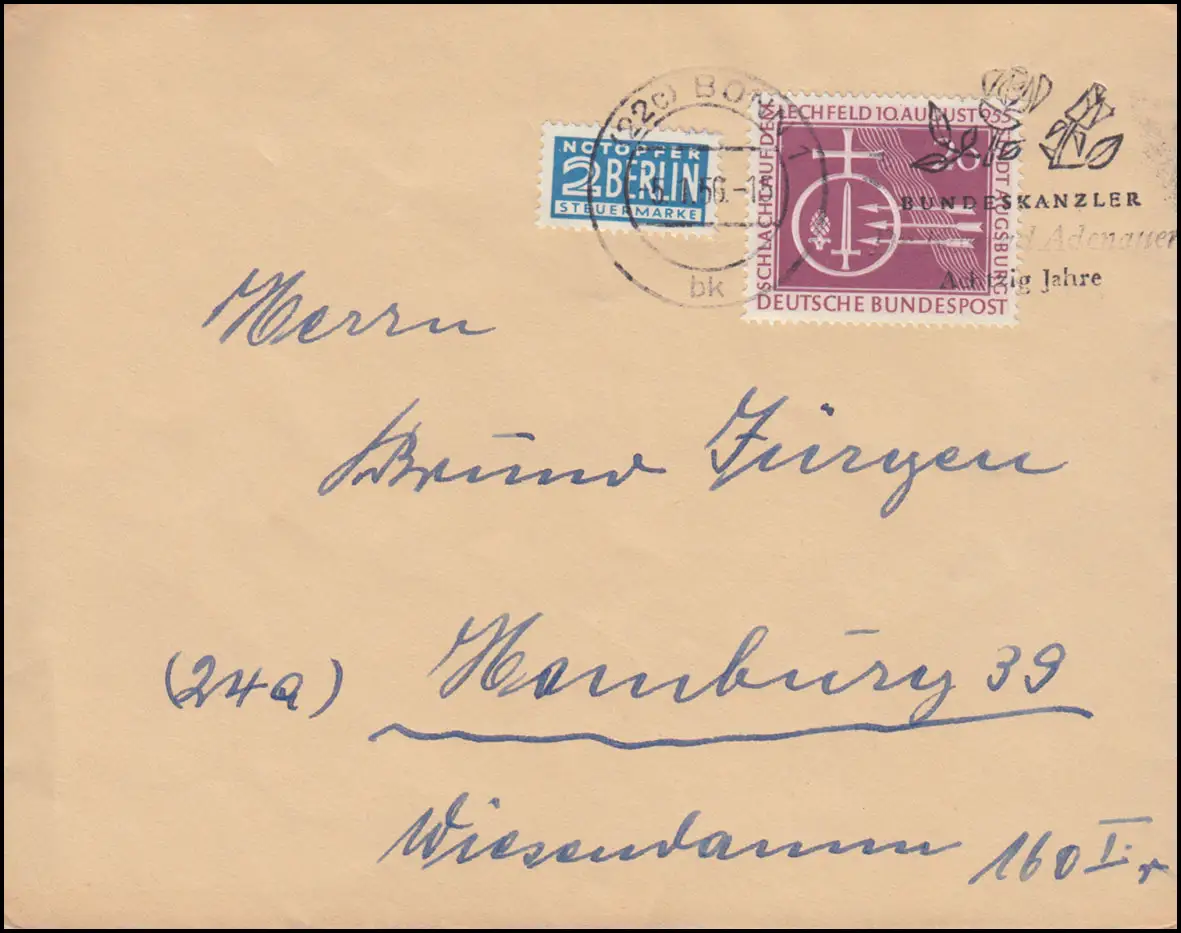 (22c) BONN 1
-5.1.56.-15
bk
NOTOPFER
2 BERLIN
STEUERMARKE
SCHLACHT AUF DEM LECHFELD 10. AUGUST 955 STADT AUGSBURG
20
DEUTSCHE BUNDESPOST
BUNDESKANZLER
Adenauer
Achtzig Jahre
Herrn
Bruno Jürgen
(24a) Hamburg 39
Wiesendamm 160 I. r